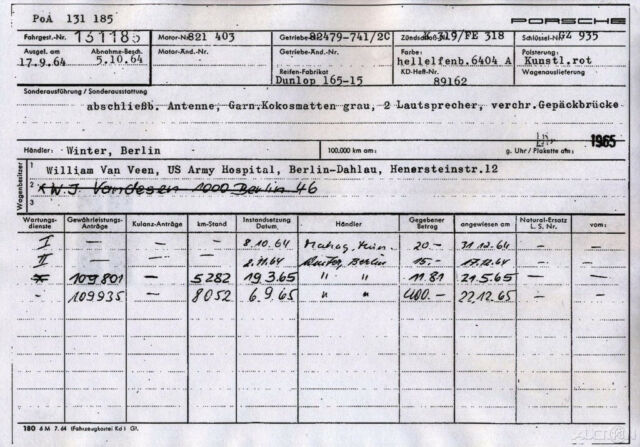 PoA 131 185 PORSCHE
Fahrgest.-Nr. 131185 Motor-Nr. 821 403 Getriebe-Nr. 82479-741/2C Zündschloß-Nr. K 319/FE 318 Schlüssel-Nr. GZ 935
Ausgel. am Abnahme-Besch. Motor-Änd.-Nr. Getriebe-Änd.-Nr. Farbe: Polsterung:
17.9.64 5.10.64 hellelfenb.6404 A Kunstl.rot
Reifen-Fabrikat KD-Heft-Nr. Wagenauslieferung
Dunlop 165-15 89162
Sonderausführung / Sonderausstattung
abschließb. Antenne, Garn.Kokosmatten grau, 2 Lautsprecher, verchr.Gepäckbrücke
Händler: Winter, Berlin 100.000 km am: g. Uhr / Plakette am: 1965
Wagenbesitzer
1 William Van Veen, US Army Hospital, Berlin-Dahlau, Henersteinstr.12
2 W.J. 1000 Berlin 46
3
Wartungsdienste Gewährleistungs-Anträge Kulanz-Anträge km-Stand Instandsetzung Datum Händler Gegebener Betrag angewiesen am Natural-Ersatz L. S. Nr. vom:
I — — 8.10.64 20.- 31.12.64 — —
II — — 2.11.64 Winter, Berlin 15.- 17.12.64 — —
109801 — 5282 19.3.65 " " 11.81 21.5.65 — —
- 109935 — 8052 6.9.65 " " 400.- 22.12.65 — —
180 6 M 7. 64 (Fahrzeugkartei Kd) Gt.